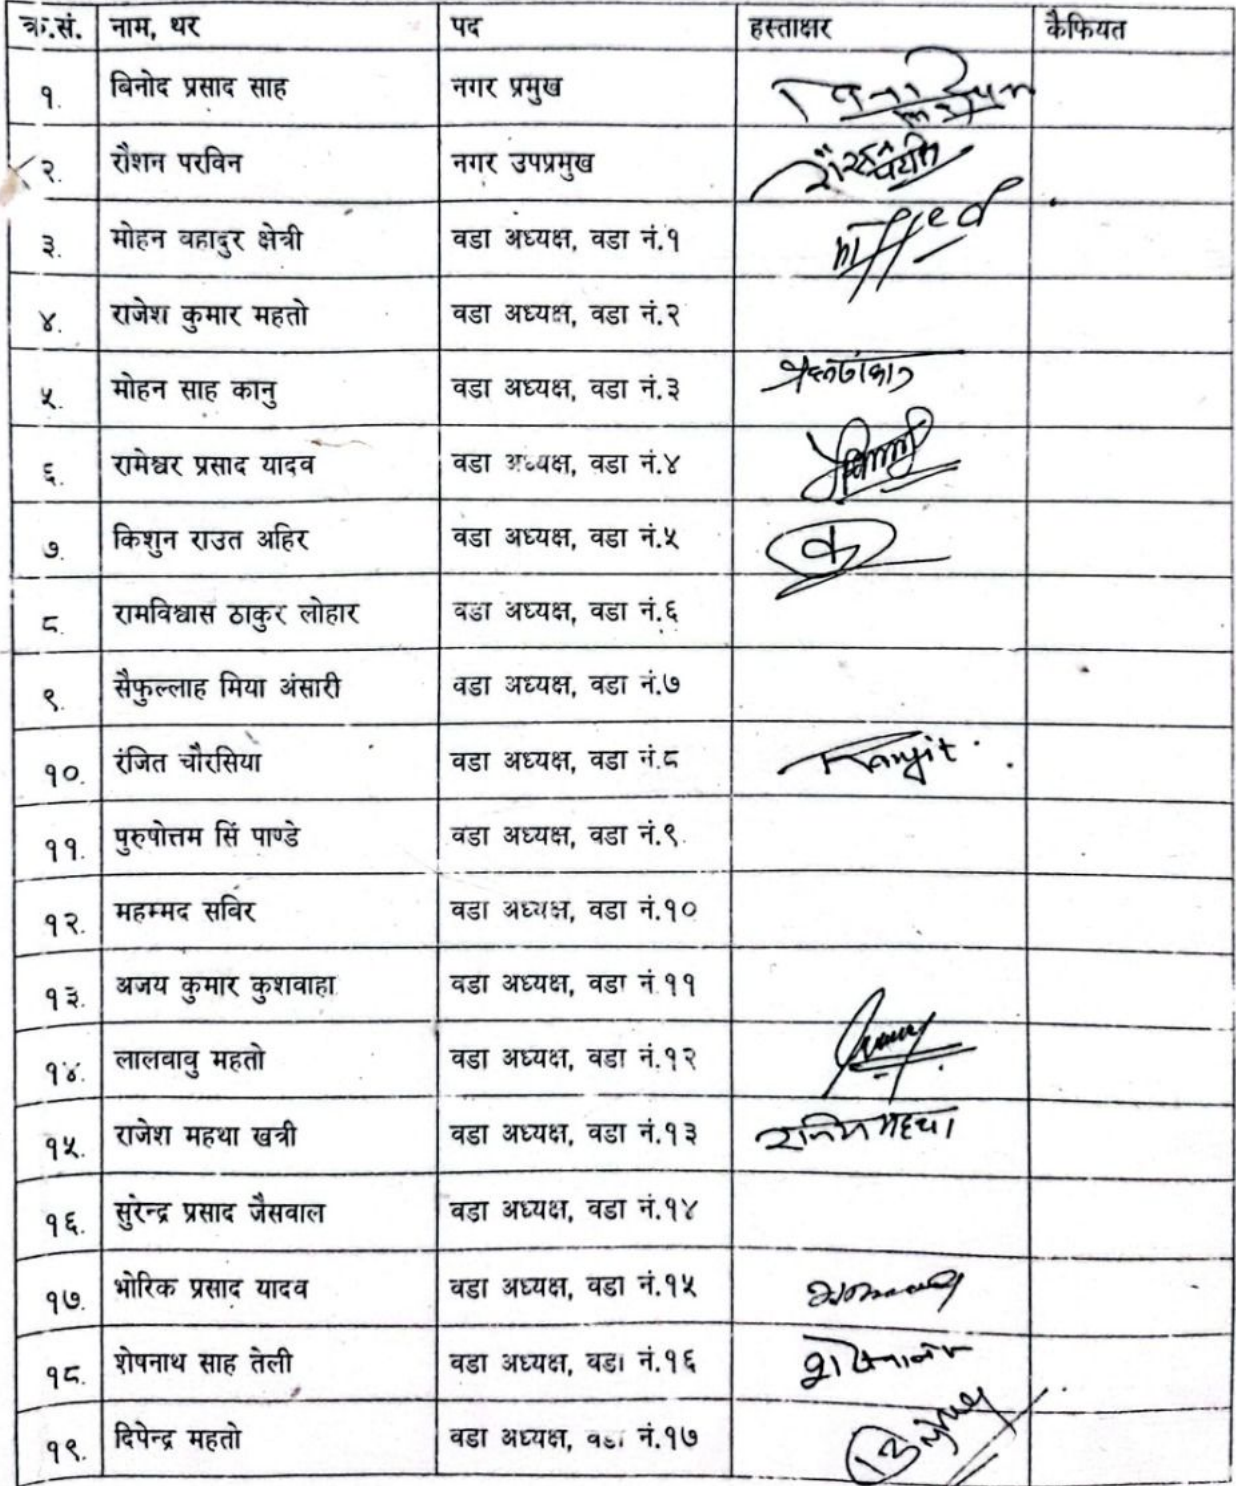 क्र.सं. नाम, थर पद हस्ताक्षर कैफियत
१. बिनोद प्रसाद साह नगर प्रमुख
२. रौशन परविन नगर उपप्रमुख
३. मोहन वहादुर क्षेत्री वडा अध्यक्ष, वडा नं.१
४. राजेश कुमार महतो वडा अध्यक्ष, वडा नं.२
५. मोहन साह कानु वडा अध्यक्ष, वडा नं.३
६. रामेश्वर प्रसाद यादव वडा अध्यक्ष, वडा नं.४
७. किशुन राउत अहिर वडा अध्यक्ष, वडा नं.५
८. रामविश्वास ठाकुर लोहार वडा अध्यक्ष, वडा नं.६
९. सैफुल्लाह मिया अंसारी वडा अध्यक्ष, वडा नं.७
१०. रंजित चौरसिया वडा अध्यक्ष, वडा नं.८ Ranjit
११. पुरुषोत्तम सिं पाण्डे वडा अध्यक्ष, वडा नं.९
१२. महम्मद सविर वडा अध्यक्ष, वडा नं.१०
१३. अजय कुमार कुशवाहा वडा अध्यक्ष, वडा नं.११
१४. लालवावु महतो वडा अध्यक्ष, वडा नं.१२
१५. राजेश महथा खत्री वडा अध्यक्ष, वडा नं.१३
१६. सुरेन्द्र प्रसाद जैसवाल वडा अध्यक्ष, वडा नं.१४
१७. भोरिक प्रसाद यादव वडा अध्यक्ष, वडा नं.१५
१८. शेषनाथ साह तेली वडा अध्यक्ष, वडा नं.१६
१९. दिपेन्द्र महतो वडा अध्यक्ष, वडा नं.१७